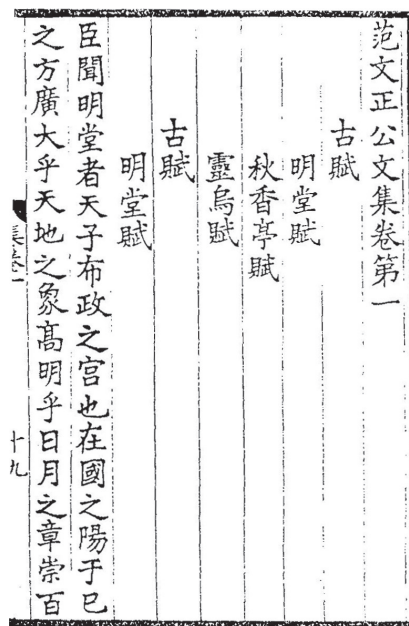 范文正公文集卷第一
古賦
明堂賦
秋香亭賦
靈烏賦
古賦
明堂賦
臣聞明堂者天子布政之宮也在國之陽于巳
之方廣大乎天地之象髙明乎日月之章崇百
集卷一
十九